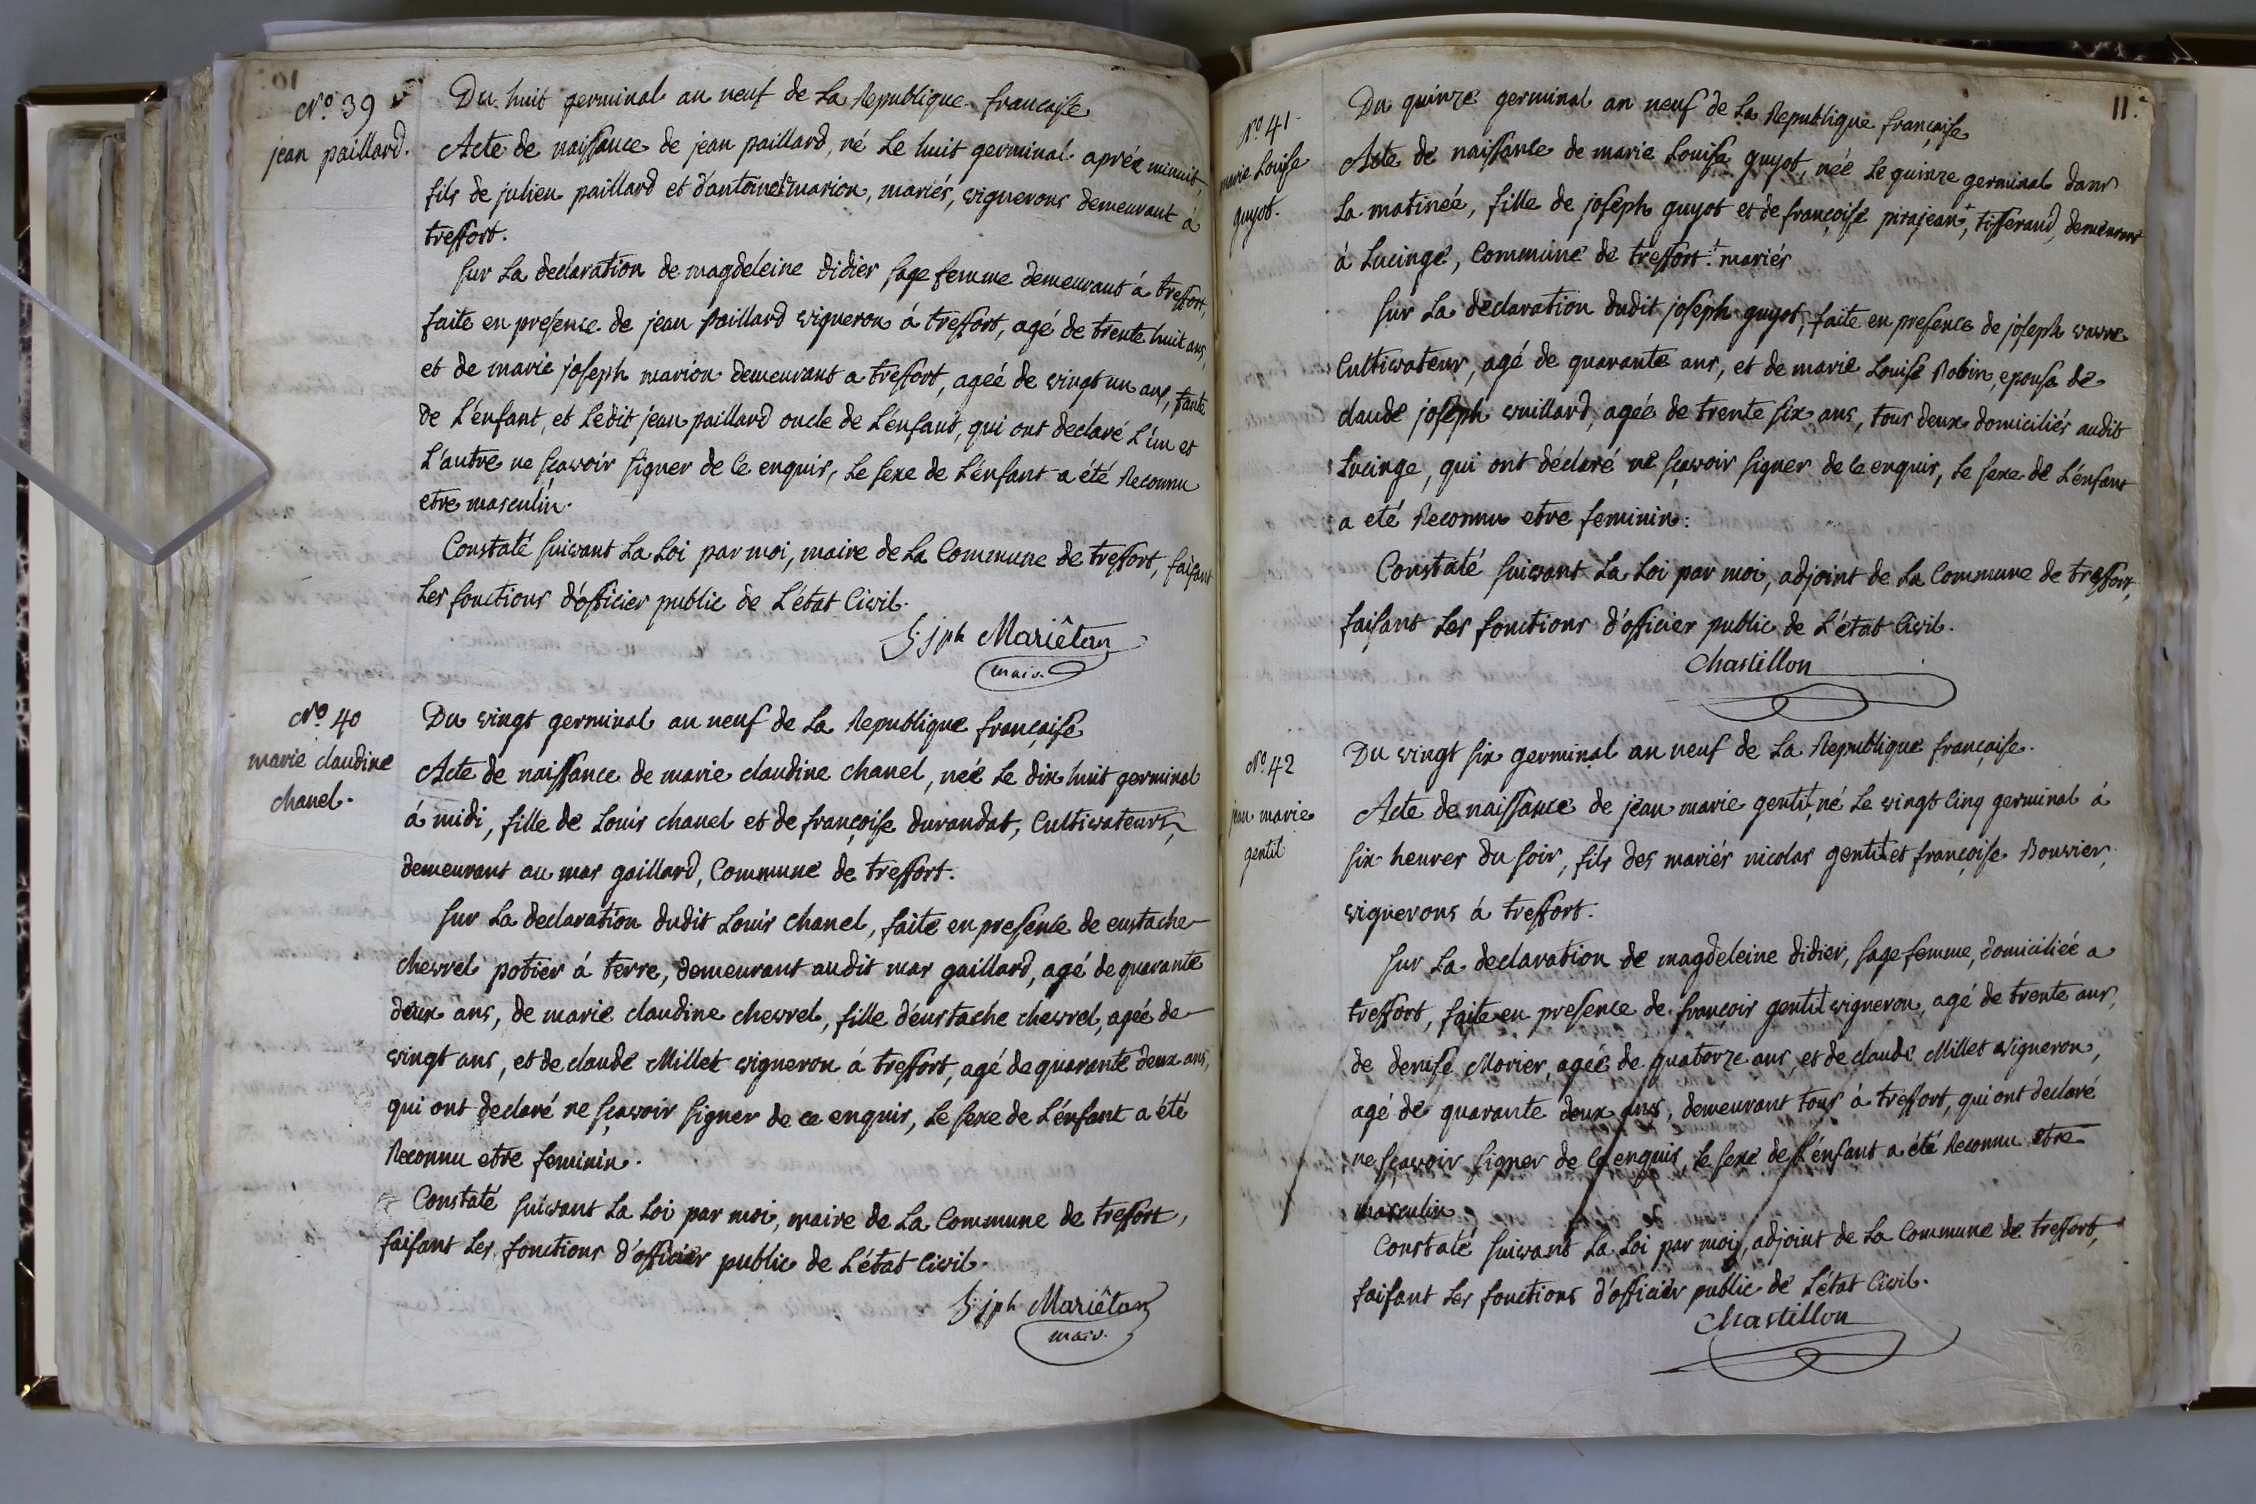 10.
N.o 39
jean paillard.
Du huit germinal an neuf de la Republique francaise
Acte de naissance de jean paillard, né le huit germinal aprés minuit,
fils de julien paillard et d'antoinete marion, mariés, vignerons demeurant á
treffort.
sur la declaration de magdeleine didier sage femme demeurant á treffort,
faite en presence de jean paillard vigneron á treffort, agé de trente huit ans,
et de marie joseph marion demeurant a treffort, ageé de vingt un ans, tante
de l'enfant, et ledit jean paillard oncle de l'enfant, qui ont declaré l'un et
l'autre ne sçavoir signer de ce enquis, le sexe de l'enfant a été Reconnu
etre masculin.
Constaté suivant la loi par moi, maire de la Commune de treffort, faisant
les fonctions d'officier public de l'état Civil.
jph Mariêtan
maire
N.o 40
marie claudine
chanel.
Du vingt germinal an neuf de la Republique françaiſe
Acte de naissance de marie claudine chanel, neé le dix huit germinal
á midi, fille de louis chanel et de françoise durandat, Cultivateurs,
demeurant au mas gaillard, Commune de treffort.
sur la declaration dudit louis chanel, faite en presence de eustache
chevrel potier á terre, demeurant audit mas gaillard, agé de quarante
deux ans, de marie claudine chevrel, fille d'eustache chevrel, ageé de
vingt ans, et de claude Millet vigneron á treffort, agé de quarante deux ans,
qui ont declaré ne sçavoir signer de ce enquis, le sexe de l'enfant a été
Reconnu etre feminin.
Constaté suivant la loi par moi, maire de la Commune de treffort,
faisant les fonctions d'officier public de l'état Civil.
jph Mariêtan
maire
11.
N.o 41
marie louise
guyot.
Du quinze germinal an neuf de la Republique française
Acte de naissance de marie louise guyot, neé le quinze germinal dans
la matineé, fille de joseph guyot et de françoise pirajean +, tisserand, demeurant
á lucinge, Commune de treffort. + mariés
sur la declaration dudit joseph guyot, faite en presence de joseph
Cultivateur, agé de quarante ans, et de marie louise Robin, epouse de
claude joseph vuillard, ageé de trente six ans, tous deux domiciliés audit
lucinge, qui ont déclaré ne sçavoir signer de ce enquis, le sexe de l'enfant
a eté Reconnu etre feminin.
Constaté suivant la loi par moi, adjoint de la Commune de treffort,
faisant les fonctions d'officier public de l'état Civil.
Chastillon
N.o 42
jean marie
gentil
Du vingt six germinal an neuf de la Republique française.
Acte de naissance de jean marie gentil, né le vingt Cinq germinal á
six heures du soir, fils des mariés nicolas gentil et françoise Bouvier,
vignerons á treffort.
sur la declaration de magdeleine didier, sage femme, domicilieé a
treffort, faite en presence de françois gentil vigneron, agé de trente ans,
de denise Morier, ageé de quatorze ans, et de claude Millet vigneron,
agé de quarante deux ans, demeurant tous á treffort, qui ont declaré
ne sçavoir signer de ce enquis, le sexe de l'enfant a été Reconnu etre
masculin
Constaté suivant la loi par moi, adjoint de la Commune de treffort,
faisant les fonctions d'officier public de l'état Civil.
Chastillon